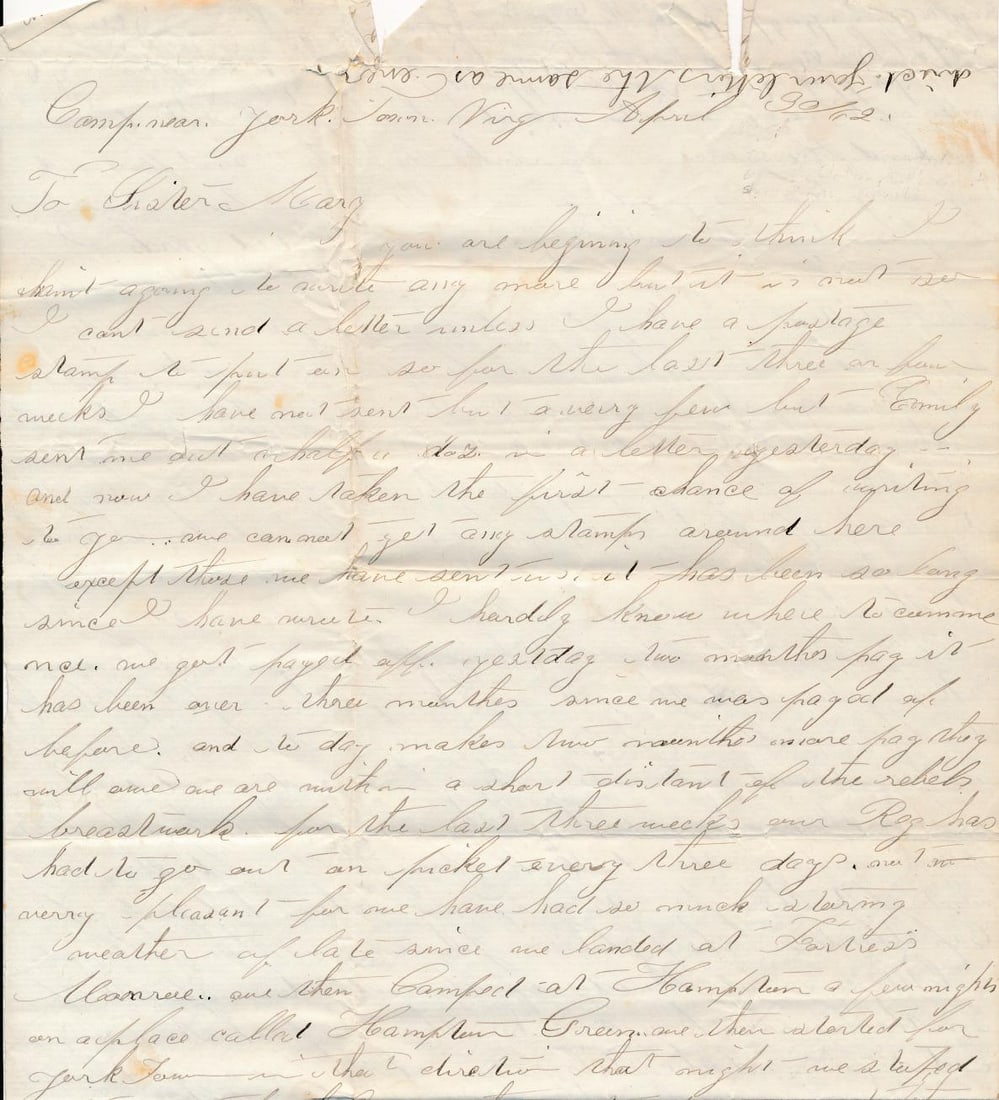 direct your letters the same as ever
Camp. near. York. Town. Virg April 30/62.
To Sister Mary
you are begining to think I
haint agoing to write any more but it is not so
I cant send a letter unless I have a postage
stamp to put on so for the last three or four
weeks I have not sent but a very few but Emily
sent me out a half a doz. in a letter yesterday
and now I have taken the first chance of writing
to yo we cannot get any stamps around here
except those we have sent us, it has been so long
since I have wrote. I hardly know where to comme
nce. we got payed off. yestday two monthes pay it
has been over three monthes since we was payed of
before. and to day makes two monthes more pay they
will owe we are with in a short distant of the rebels
breastwork. for the last three weeks our Reg has
had to go out on picket every three days. not
verry pleasant for we have had so much storing
weather of late since we landed at Fortress
Monroe.. we then Camped at Hampton a few nights
on a place callat Hampton Green. we then started for
York Town in that directin that night we stoped